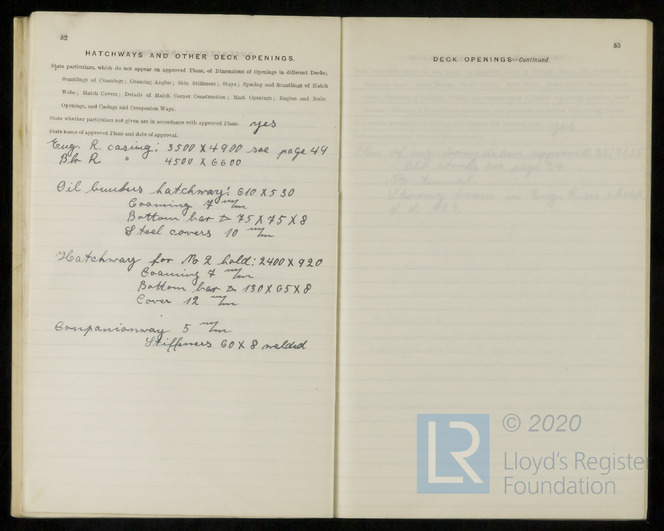 52
HATCHWAYS AND OTHER DECK OPENINGS.
State particulars, which do not appear on approved Plans, of Dimensions of Openings in different Decks;
Scantlings of Coamings; Coaming Angles; Side Stiffeners; Stays; Spacing and Scantlings of Hatch
Webs; Hatch Covers; Details of Hatch Corner Construction; Mast Openings; Engine and Boiler
Openings, and Casings and Companion Ways.
State whether particulars not given are in accordance with approved Plans. yes
State name of approved Plans and date of approval.
Eng. R. casing: 3500 X 4900 see page 44
Blr R " 4500 X 6600
Oil bunkers hatchway: 610 X 530
Coaming 7 m/m
Bottom bar 75 X 75 X 8
Steel covers 10 m/m
Hatchway for No 2 hold: 2400 X 920
Coaming 7 m/m
Bottom bar 130 X 65 X 8
Cover 12 m/m
Companionway 5 m/m
Stiffeners 60 X 8 welded
53
DECK OPENINGS—Continued.
LR
© 2020
Lloyd's Register
Foundation